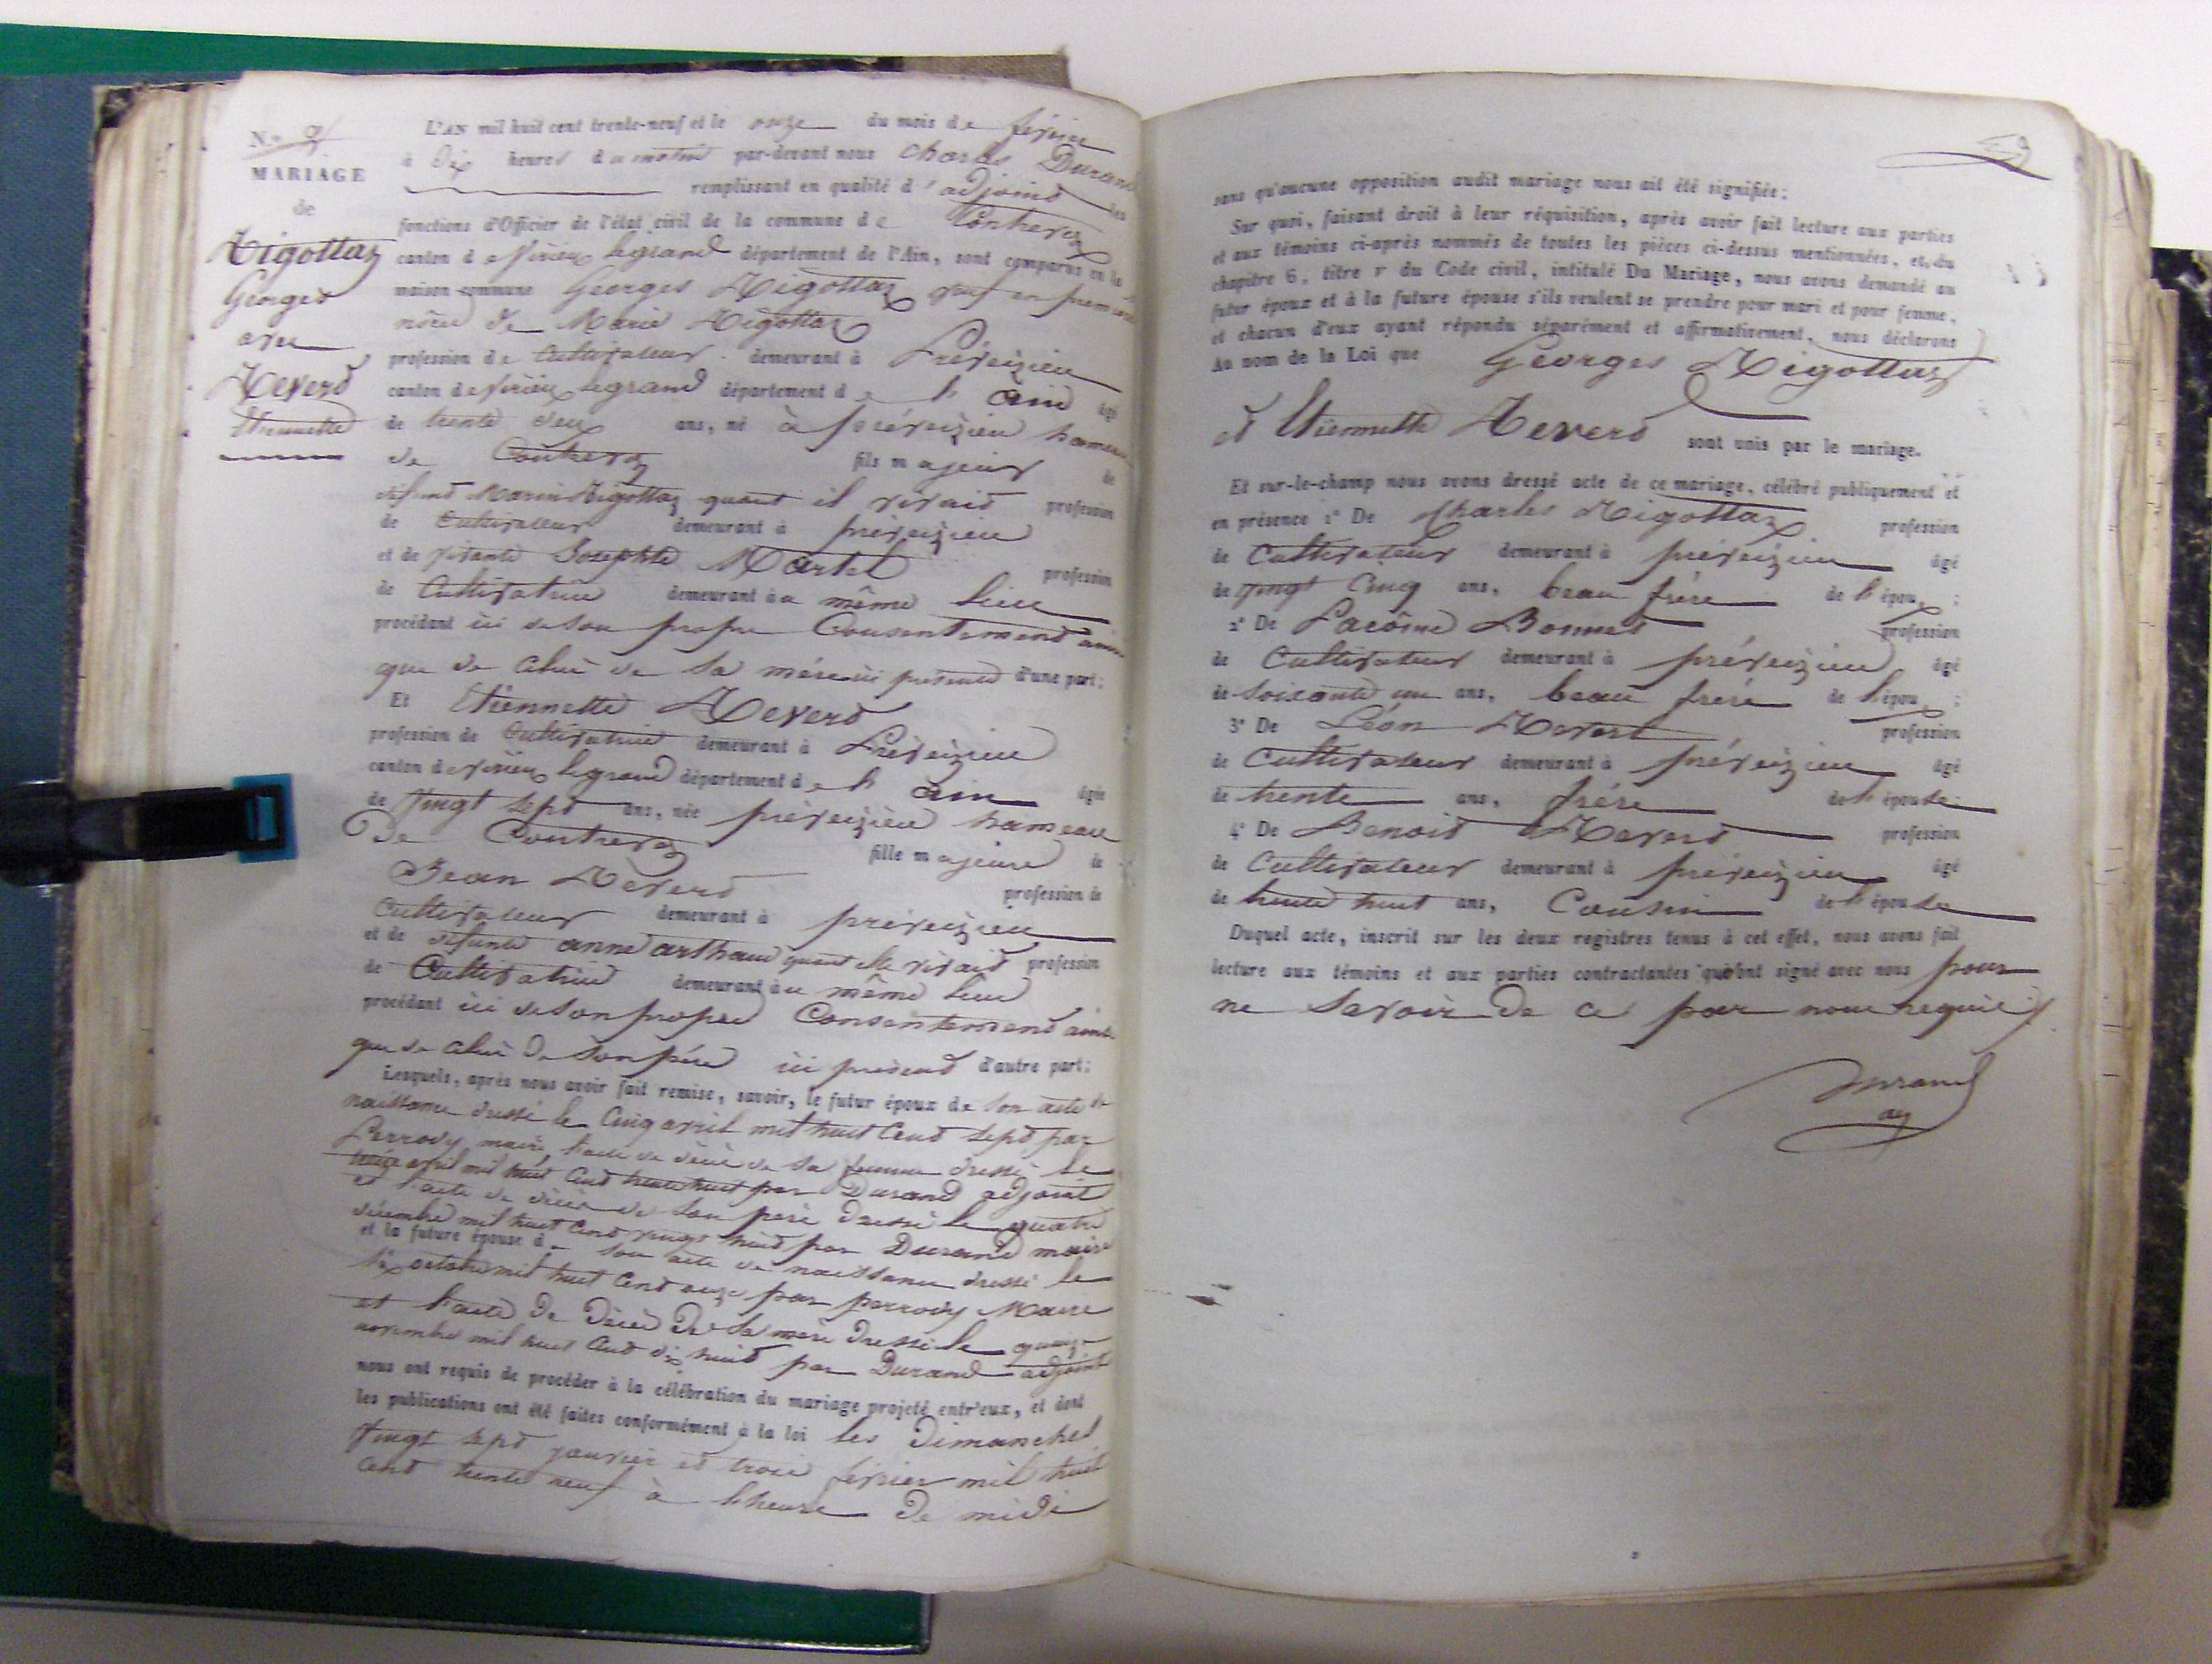 N.o 2
MARIAGE
de
Rigottaz
Georges
avec
Reverd
Etiennette
L'AN mil huit cent trente-neuf et le onze du mois de fevrier
à Dix heures du matin par-devant nous Charles Durand
remplissant en qualité d'adjoind les
fonctions d'Officier de l'état civil de la commune de Contrevoz
canton de Virieu legrand département de l'Ain, sont comparus en la
maison commune Georges Rigottaz veuf en premiere
nôces de Marie Rigottaz
profession de Cultivateur demeurant à Préveizieu
canton de Virieu legrand département de l'ain âgé
de trente deux ans, né à préveizieu hameau
de Contrevoz fils majeur de
défund Marin Rigottaz quant il vivaid profession
de Cultivateur demeurant à préveizieu
et de vivante Josephte Martel profession
de Cultivatrice demeurant au même lieu
procédant ici de son propre Consentemend ainsi
que de celui de sa mére ici présente d'une part;
Et Etiennette Reverd
profession de Cultivatrice demeurant à Préveizieu
canton de Virieu legrand département de l'ain âgée
de vingt sepd ans, née préveizieu hameau
De Contrevoz fille majeure de
Jean Reverd profession de
Cultivateur demeurant à préveizieu
et de défunte anne arthaud quant elle vivaid profession
de Cultivatrice demeurant au même lieu
procédant ici de son propre Consentemend ainsi
que de celui de son pére ici présend d'autre part;
Lesquels, après nous avoir fait remise, savoir, le futur époux de son acte de
naissance dressé le Cinq avril mil huit Cend sepd par
Perrody maire, l'acte de décès de sa femme dressé le
avril mil huit Cend trente huit par Durand adjoint
et l'acte de décès de son pere dressé le quatre
décembre mil huit Cend vingt huid par Durand maire
et la future épouse de son acte de naissance dressé le
six octobre mil huit Cend onze par perrody Maire
et l'acte De Décès De sa mere Dressé le quinze
novembre mil huit Cend dix huid par Durand adjoint
nous ont requis de procéder à la célébration du mariage projeté entr'eux, et dont
les publications ont été faites conformément à la loi les Dimanches
vingt sepd janvier et trois février mil huit
Cend trente neuf à l'heure De midi
9
sans qu'aucune opposition audit mariage nous ait été signifiée;
Sur quoi, faisant droit à leur réquisition, après avoir fait lecture aux parties
et aux témoins ci-après nommés de toutes les pièces ci-dessus mentionnées, et du
chapitre 6, titre v du Code civil, intitulé Du Mariage, nous avons demandé au
futur époux et à la future épouse s'ils veulent se prendre pour mari et pour femme,
et chacun d'eux ayant répondu séparément et affirmativement, nous déclarons
Au nom de la Loi que Georges Rigottaz
et Etiennette Reverd sont unis par le mariage.
Et sur-le-champ nous avons dressé acte de ce mariage, célébré publiquement et
en présence 1° De Charles Rigottaz profession
de Cultivateur demeurant à préveizieu âgé
de vingt Cinq ans, beau frére de l'époux;
2° De Bonnet profession
de Cultivateur demeurant à préveizieu âgé
de soixante un ans, beau frére de l'époux;
3° De Léon Reverd profession
de Cultivateur demeurant à préveizieu âgé
de trente ans, frére de l'épouse
4° De Benoid Reverd profession
de Cultivateur demeurant à préveizieu âgé
de trente huit ans, Cousin de l'épouse
Duquel acte, inscrit sur les deux registres tenus à cet effet, nous avons fait
lecture aux témoins et aux parties contractantes qui n'ont signé avec nous pour
ne Savoir de ce par nous requis
Durand
adj